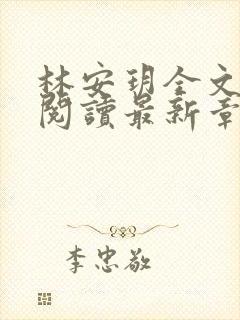 林安玥全文
閱讀最新章
李忠敬